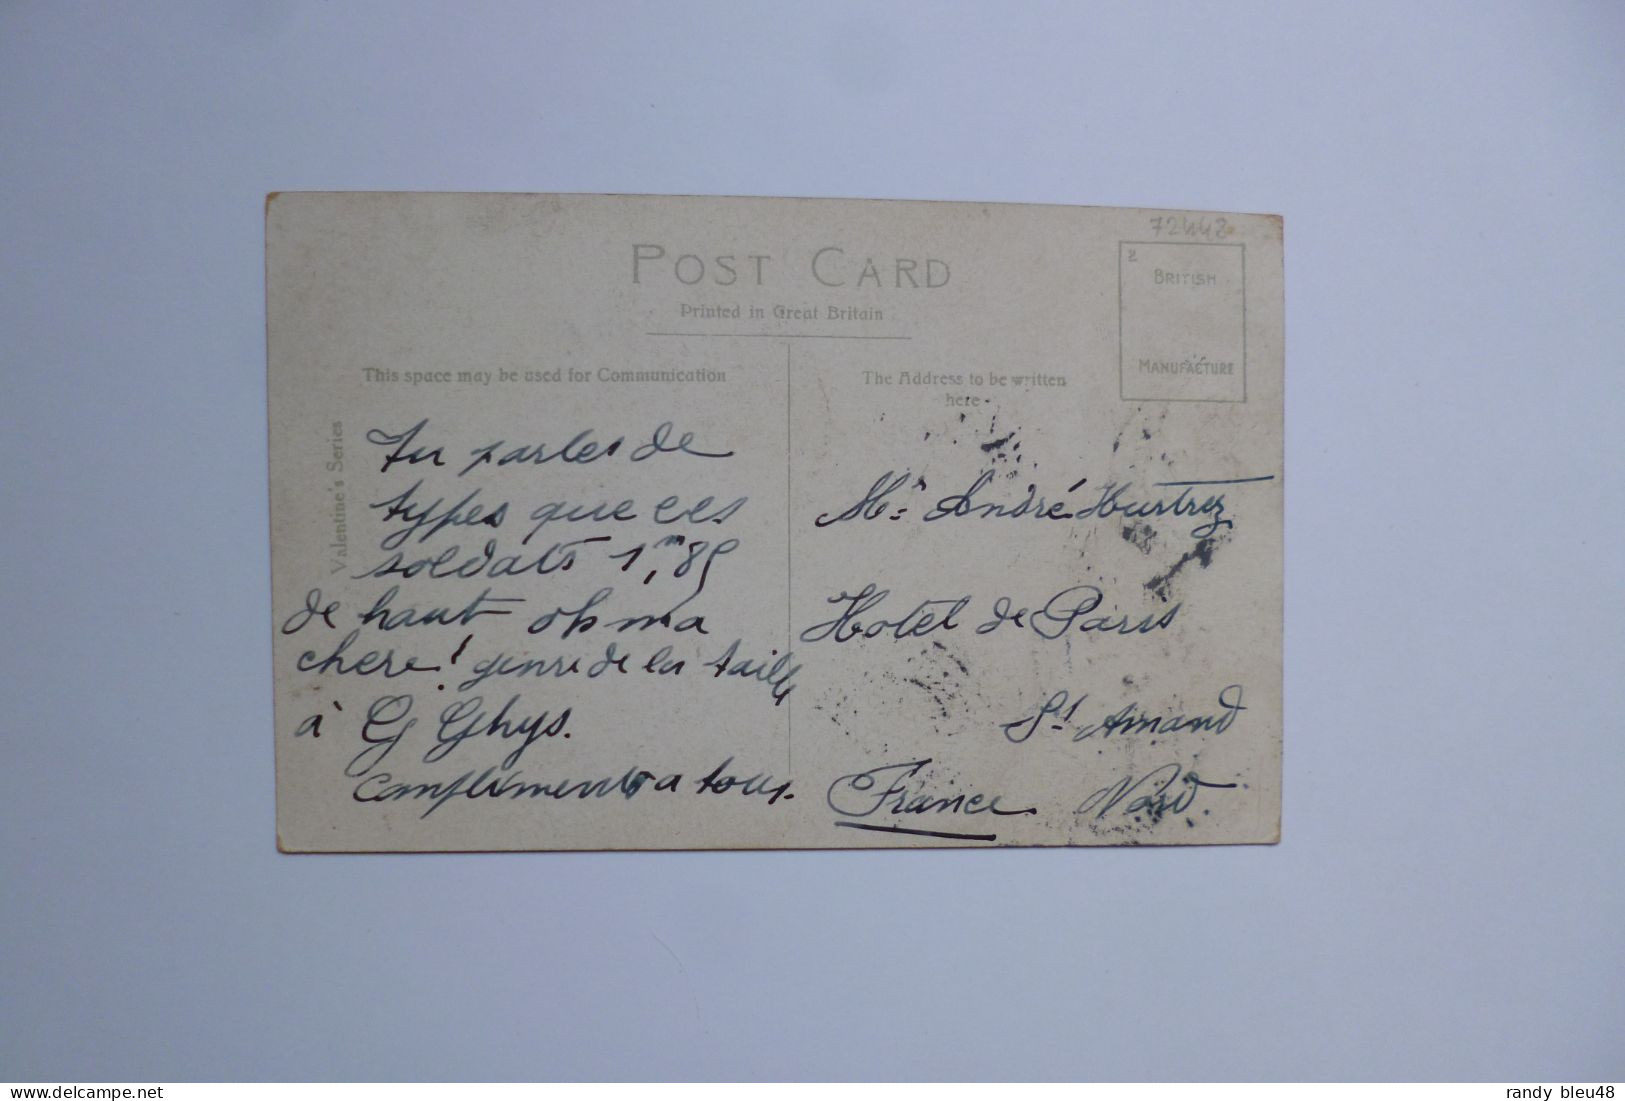 72442
POST CARD
Printed in Great Britain
2
BRITISH
MANUFACTURE
This space may be used for Communication
The Address to be written
here
Valentine's Series
Tu parles de
types que ces
soldats 1,m85
de haut oh ma
chere! genre de la taille
à G Ghys.
compliments a tous.
Mr André Hurtrez
Hotel de Paris
St Amand
France Nord.
randy bleu48